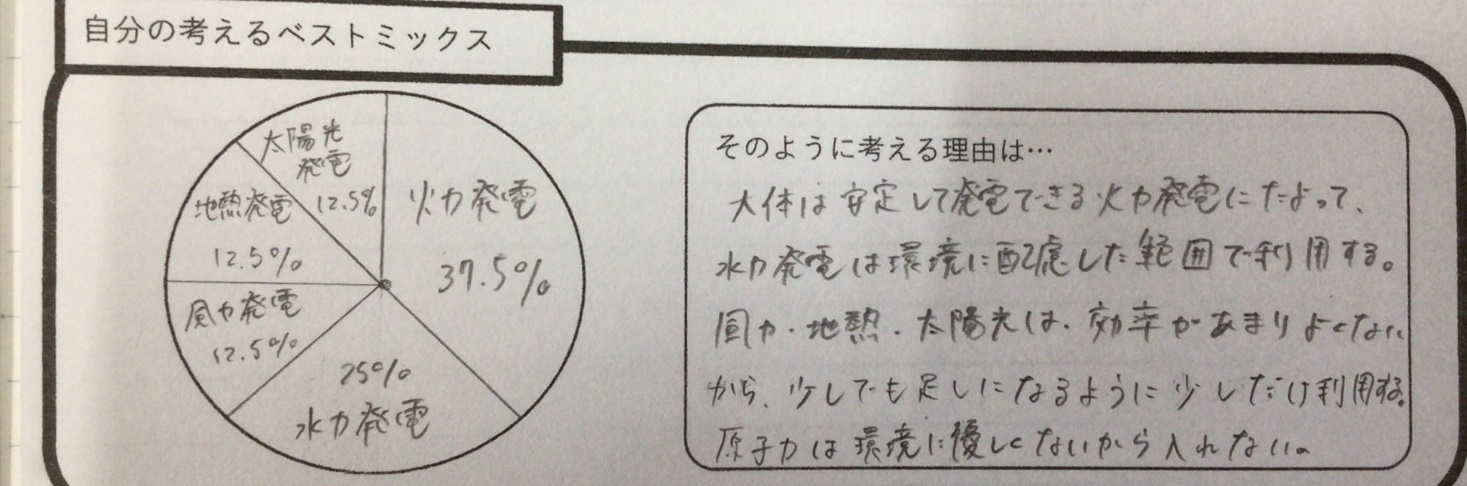 自分の考えるベストミックス
太陽光
発電
12.5%
火力発電
37.5%
地熱発電
12.5%
風力発電
12.5%
25%
水力発電
そのように考える理由は…
大体は安定して発電できる火力発電にたよって、
水力発電は環境に配慮した範囲で利用する。
風力・地熱・太陽光は、効率があまりよくない
から、少しでも足しになるように少しだけ利用する。
原子力は環境に優しくないから入れない。